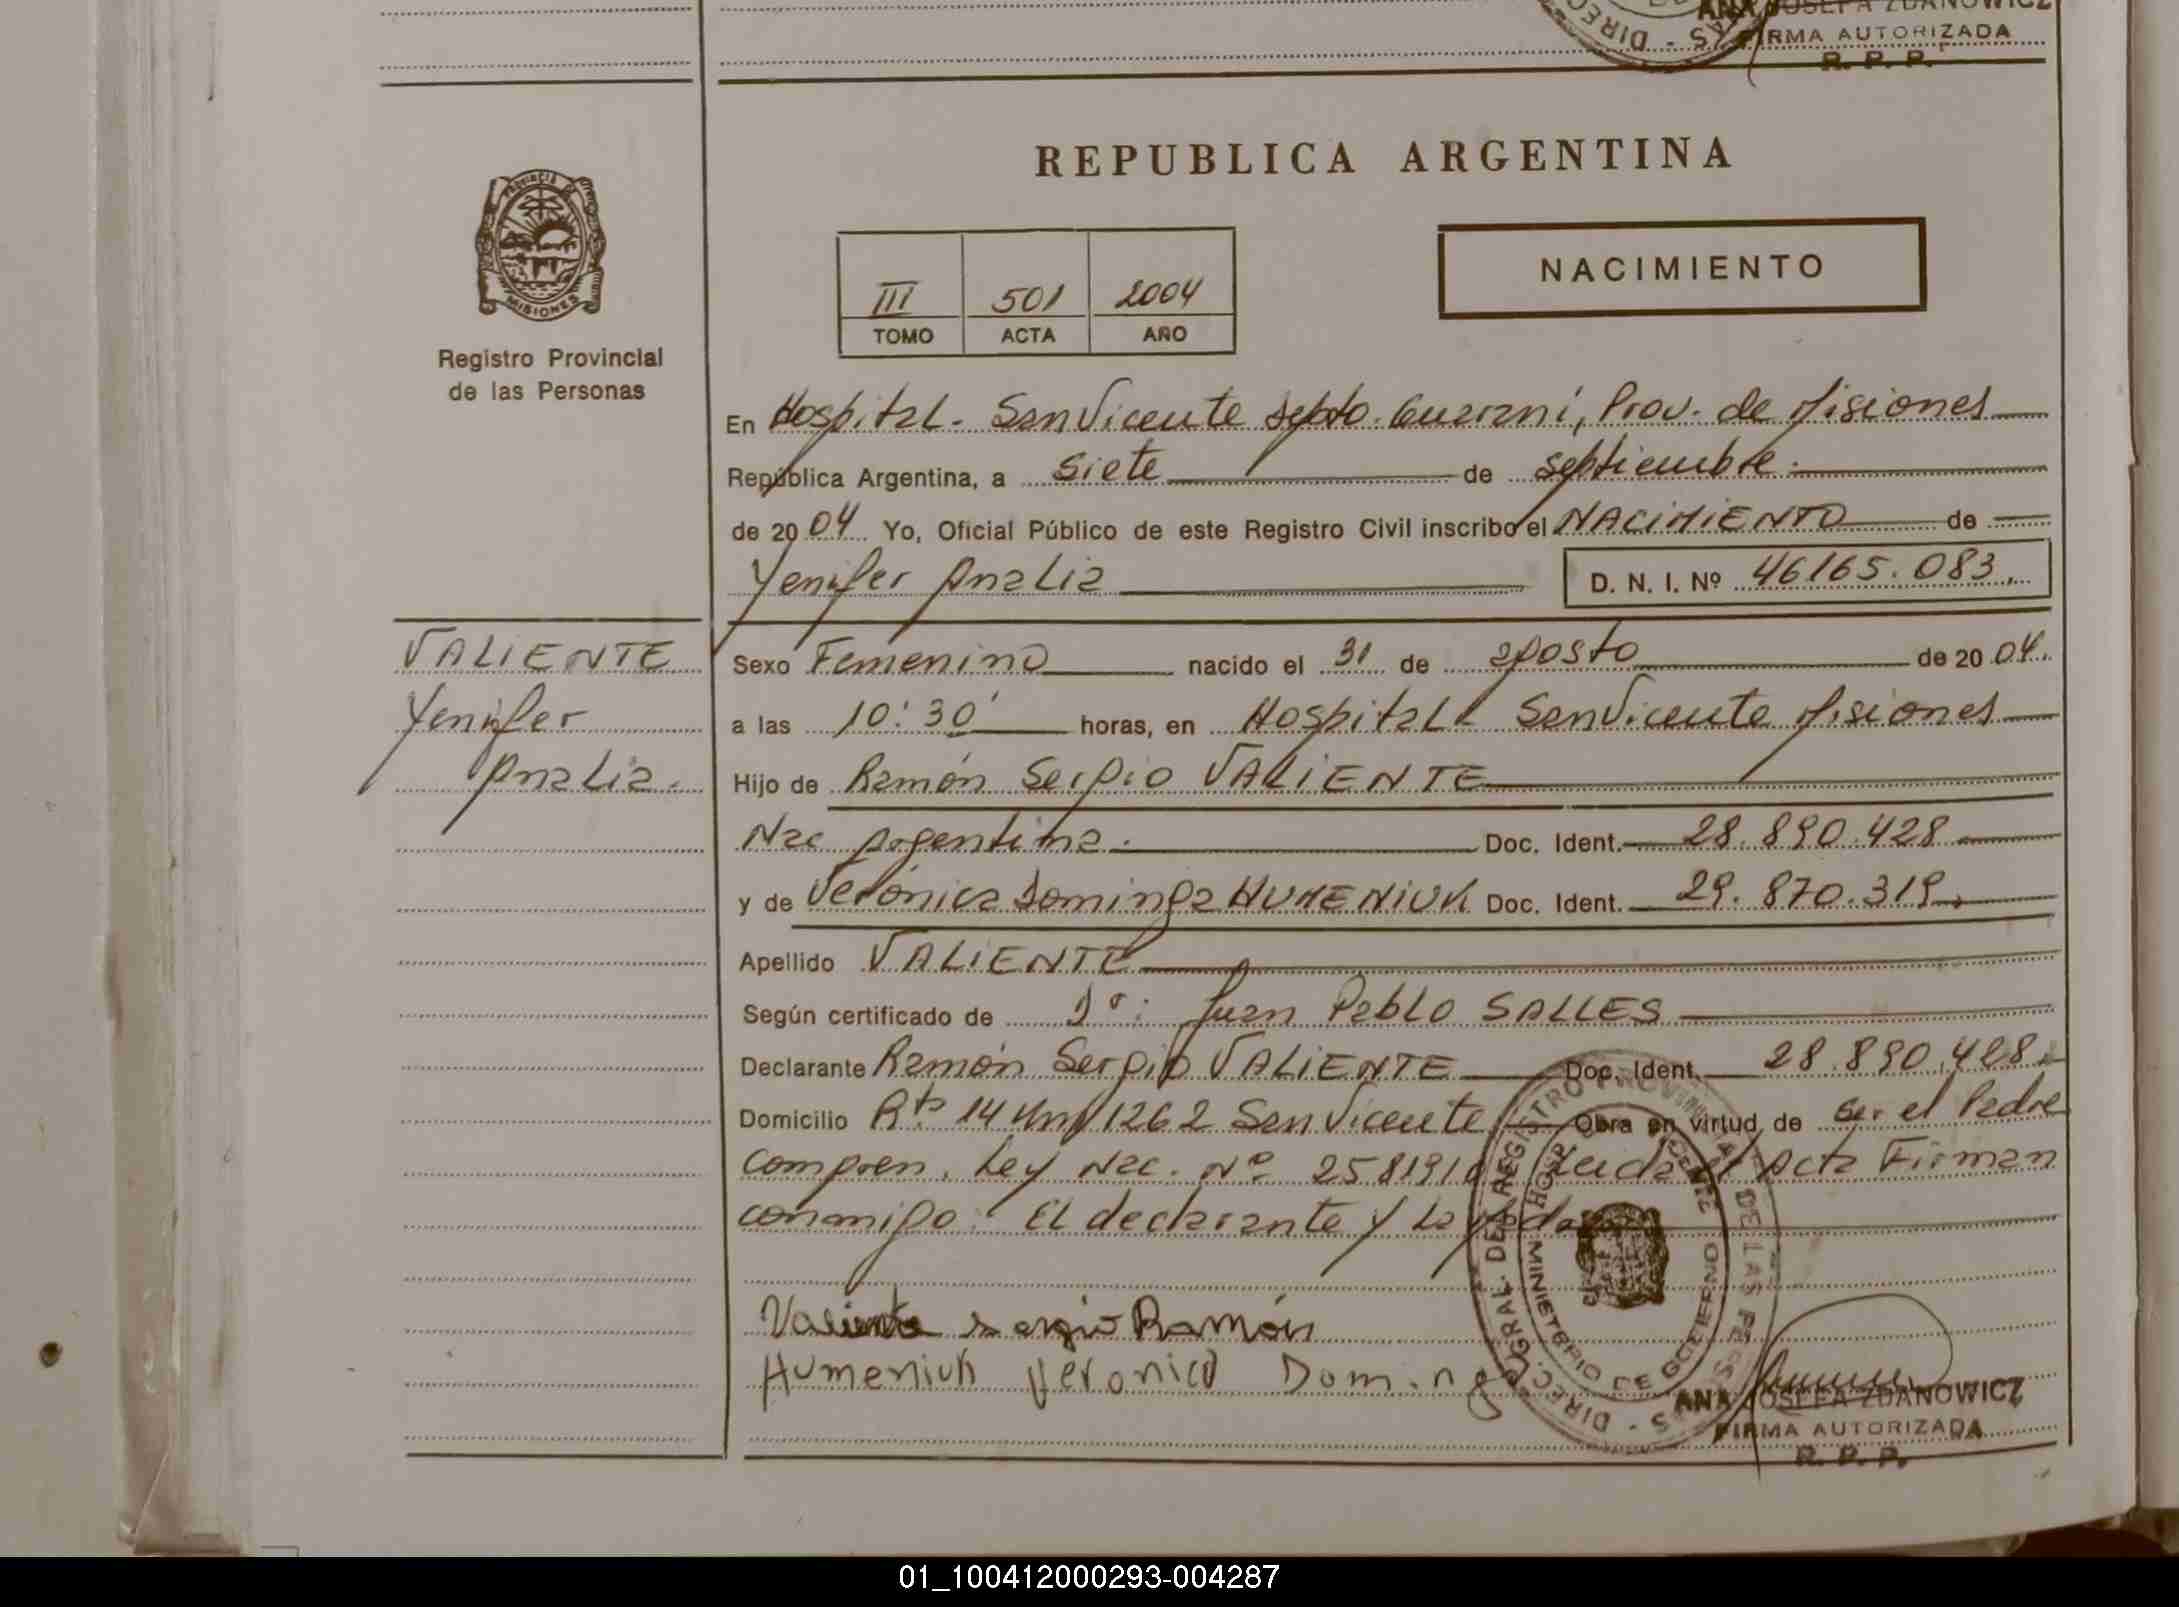 ANA JOSEFA ZDANOWICZ
FIRMA AUTORIZADA
R. P. P.
REPUBLICA ARGENTINA
PROVINCIA DE
MISIONES
NACIMIENTO
III 501 2004
TOMO ACTA AÑO
Registro Provincial
de las Personas
En Hospital - San Vicente Depto. Guaraní, Prov. de Misiones
República Argentina, a Siete de septiembre.
de 2004 Yo, Oficial Público de este Registro Civil inscribo el NACIMIENTO de
Yenifer Analia D. N. I. Nº 46165.083.
VALIENTE
Yenifer
Analia.
Sexo Femenino nacido el 31 de agosto de 2004.
a las 10:30 horas, en Hospital - San Vicente Misiones
Hijo de Ramón Sergio VALIENTE
Nac Argentina. Doc. Ident. 28.890.428
y de Verónica Dominga HUMENIUK Doc. Ident. 29.870.319
Apellido VALIENTE
Según certificado de Dr. Juan Pablo SALLES
Declarante Ramón Sergio VALIENTE Doc. Ident. 28.890.428.
Domicilio Rta 14 Km 1262 San Vicente Obra en virtud de ser el Padre
Compren. Ley Nac. Nº 25819 Leida el Acta Firman
conmigo. El declarante y la
Valiente Sergio Ramón
Humeniuk Veronica Dominga
DIREC. GRAL. DEL REGISTRO PROVINCIAL DE LAS PERSONAS
MINISTERIO DE GOBIERNO
ANA JOSEFA ZDANOWICZ
FIRMA AUTORIZADA
R. P. P.
01_100412000293-004287